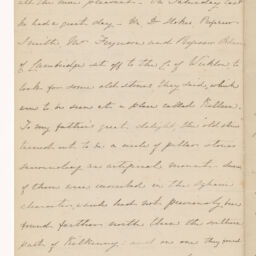 all the more pleasant. On Saturday last
he had a great day - Mr Dr Stokes Professor
Smith, Mr Ferguson and Professor Adams
of Cambridge set off to the Co. of Wicklow to
look for some old stones they said, which
were to be seen at a place called Killeen.
To my father's great delight, the "old stones"
turned out to be a circle of pillar stones
surrounding an artificial mound. Seven
of them were inscribed in the Ogham
character, which had not previously been
found farther north than the southern
part of Kilkenny: and on one they must